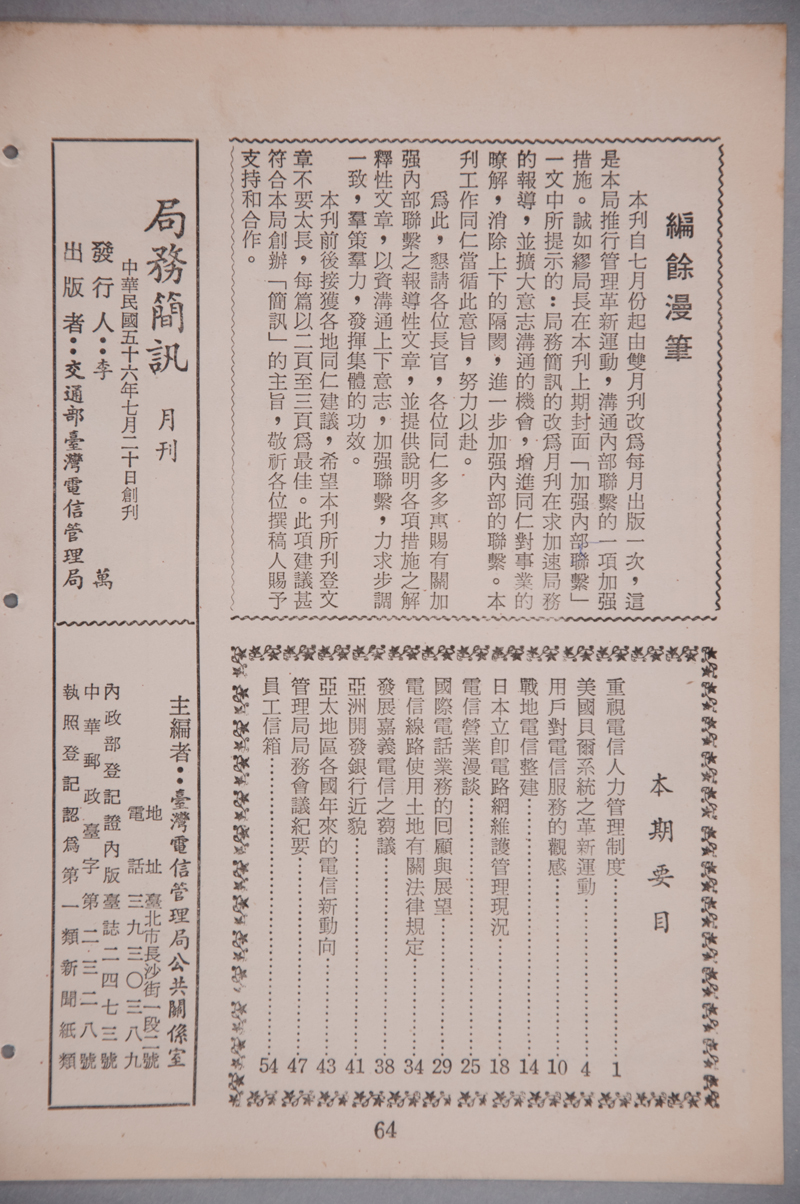 編餘漫筆
本刊自七月份起由雙月刊改爲每月出版一次，這
是本局推行管理革新運動，溝通內部聯繫的一項加强
措施。誠如繆局長在本刊上期封面「加强內部聯繫」
一文中所提示的：局務簡訊的改爲月刊在求加速局務
的報導，並擴大意志溝通的機會，增進同仁對事業的
瞭解，消除上下的隔閡，進一步加强內部的聯繫。本
刊工作同仁當循此意旨，努力以赴。
爲此，懇請各位長官，各位同仁多多惠賜有關加
强內部聯繫之報導性文章，並提供說明各項措施之解
釋性文章，以資溝通上下意志，加强聯繫，力求步調
一致，羣策羣力，發揮集體的功效。
本刊前後接獲各地同仁建議，希望本刊所刊登文
章不要太長，每篇以二頁至三頁爲最佳。此項建議甚
符合本局創辦「簡訊」的主旨，敬祈各位撰稿人賜予
支持和合作。
本期要目
重視電信人力管理制度……………1
美國貝爾系統之革新運動……………4
用戶對電信服務的觀感……………10
戰地電信整建……………14
日本立卽電路網維護管理現況……………18
電信營業漫談……………25
國際電話業務的回顧與展望……………29
電信線路使用土地有關法律規定……………34
發展嘉義電信之蒭議……………38
亞洲開發銀行近貌……………41
亞太地區各國年來的電信新動向……………43
管理局局務會議紀要……………47
員工信箱……………54
局務簡訊 月刊
中華民國五十六年七月二十日創刊
發行人：李萬
出版者：交通部臺灣電信管理局
主編者：臺灣電信管理局公共關係室
地址 臺北市長沙街一段二號
電話 三九三〇三八九
內政部登記證內版臺誌二四七三號
中華郵政臺字第二三二八號
執照登記認爲第一類新聞紙類
64